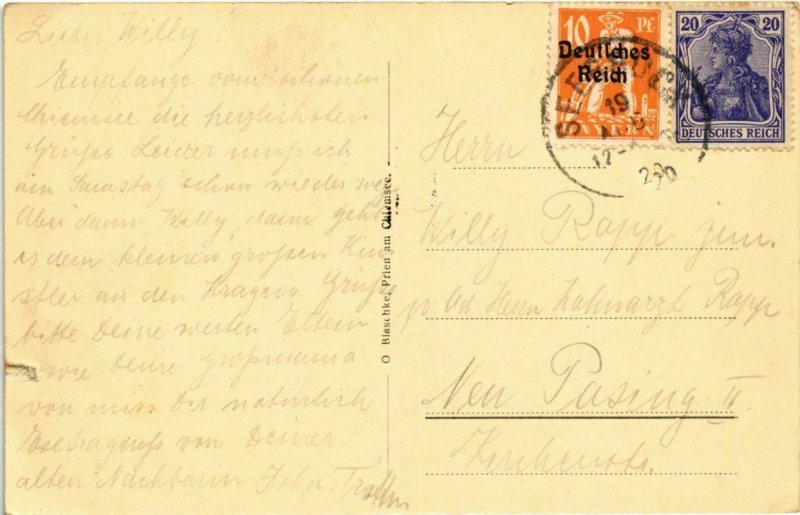 Lieber Willy
Empfange vom schönen
Chiemsee die herzlichsten
Grüße Leider muß ich
am Samstag schon wieder weg
Aber dann, Willy, dann geht
es dem kleinen großen Kün
stler an den Kragen. Grüße
bitte Deine werten Eltern
Deine Großmama
von mir Dir natürlich
von Deiner
alten Nachbarin
O Blaschke, Prien am Chiemsee.
10 Pf
Deutsches
Reich
BAYERN
20 20
DEUTSCHES REICH
SEEBRUCK
19
AUG
12-
20
Herrn
Willy Rapp jun.
p. Ad Herrn Zahnarzt Rapp
Neu Pasing II
Kirchenstr.